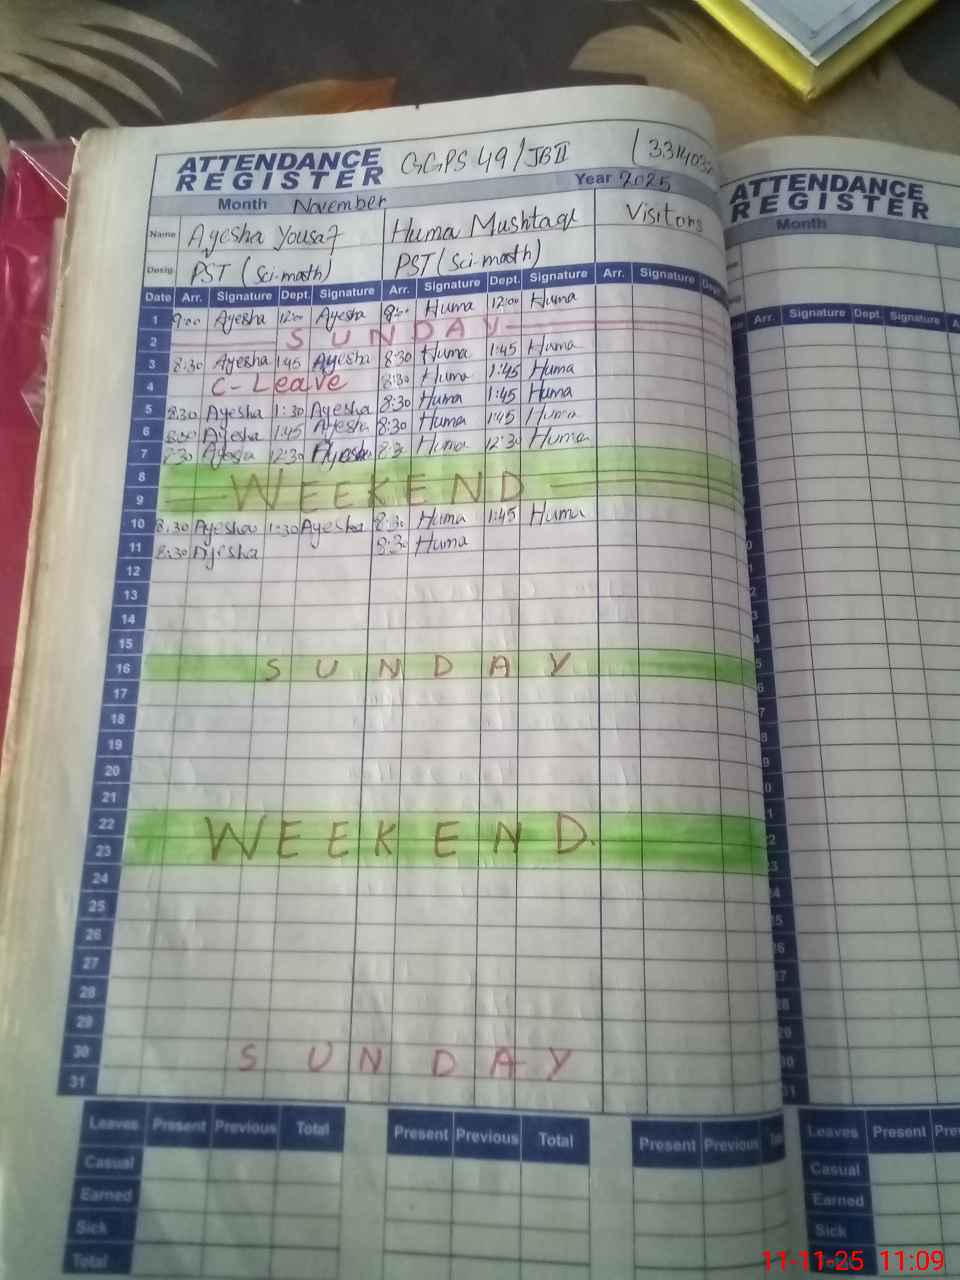 ATTENDANCE REGISTER GGPS 49/JB II
Year 2025
Month November
Name Ayesha Yousaf Huma Mushtaq Visitors
Desig. PST (Sci-math) PST (Sci-math)
Date Arr. Signature Dept. Signature Arr. Signature Dept. Signature Arr. Signature
1 9:00 Ayesha 12:00 Ayesha 9:00 Huma 12:00 Huma
2 SUNDAY
3 8:30 Ayesha 1:45 Ayesha 8:30 Huma 1:45 Huma
4 C-Leave 8:30 Huma 1:45 Huma
5 8:30 Ayesha 1:30 Ayesha 8:30 Huma 1:45 Huma
6 Ayesha 1:45 Ayesha 8:30 Huma 1:45 Huma
7 8:30 Ayesha 12:30 Ayesha Huma 12:30 Huma
8
9 WEEKEND
10 8:30 Ayesha 1:30 Ayesha Huma 1:45 Huma
11 8:30 Ayesha Huma
12
13
14
15
16 SUNDAY
17
18
19
20
21
22 WEEKEND.
23
24
25
26
27
28
29
30 SUNDAY
31
Leaves Present Previous Total Present Previous Total Present Previous
Casual
Earned
Sick
Total
ATTENDANCE REGISTER
Month
Arr. Signature Dept. Signature
Leaves Present
Casual
Earned
Sick
11-11-25 11:09